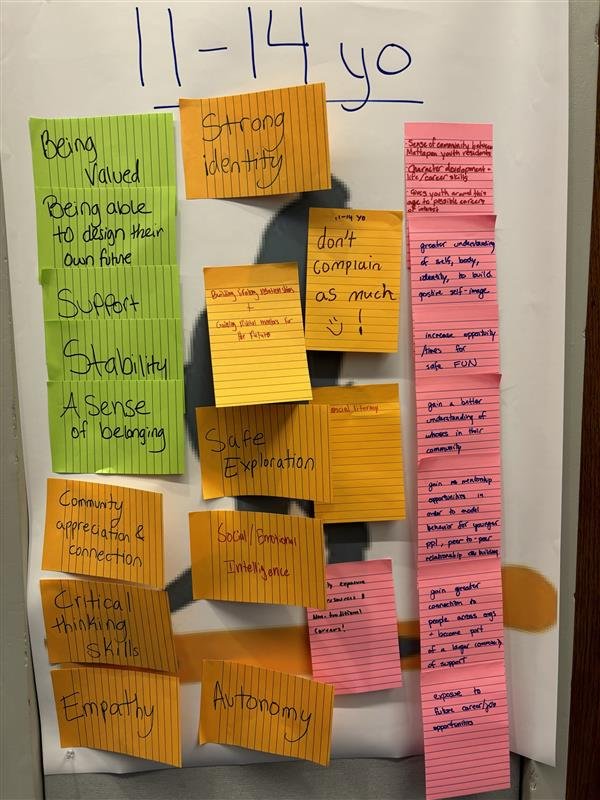 11-14 yo
Being
Valued
Being able
to design their
own future
Support
Stability
A Sense
of belonging
Community
appreciation &
connection
Critical
thinking
skills
Empathy
Strong
identity
11-14 yo
don't
complain
as much
!
Building strong relationships
+
Gaining mentors for
the future
Safe
Exploration
social literacy
Social/Emotional
Intelligence
exposure
resources &
Non-traditional
careers!
Autonomy
- Sense of community between
Mattapan youth residents
- Character development +
life/career skills
- Gives youth around this
age to possible careers
of interest
greater understanding
of self, body,
identity, to build
positive self-image
increase opportunity
/times for
safe FUN
gain a better
understanding of
whoes in their
community
gain mentorship
opportunities in
order to model
behavior for younger
ppl, peer-to-peer
relationship building
gain greater
connection to
people across orgs
+ become part
of a larger community
of support
exposure to
future career/job
opportunities